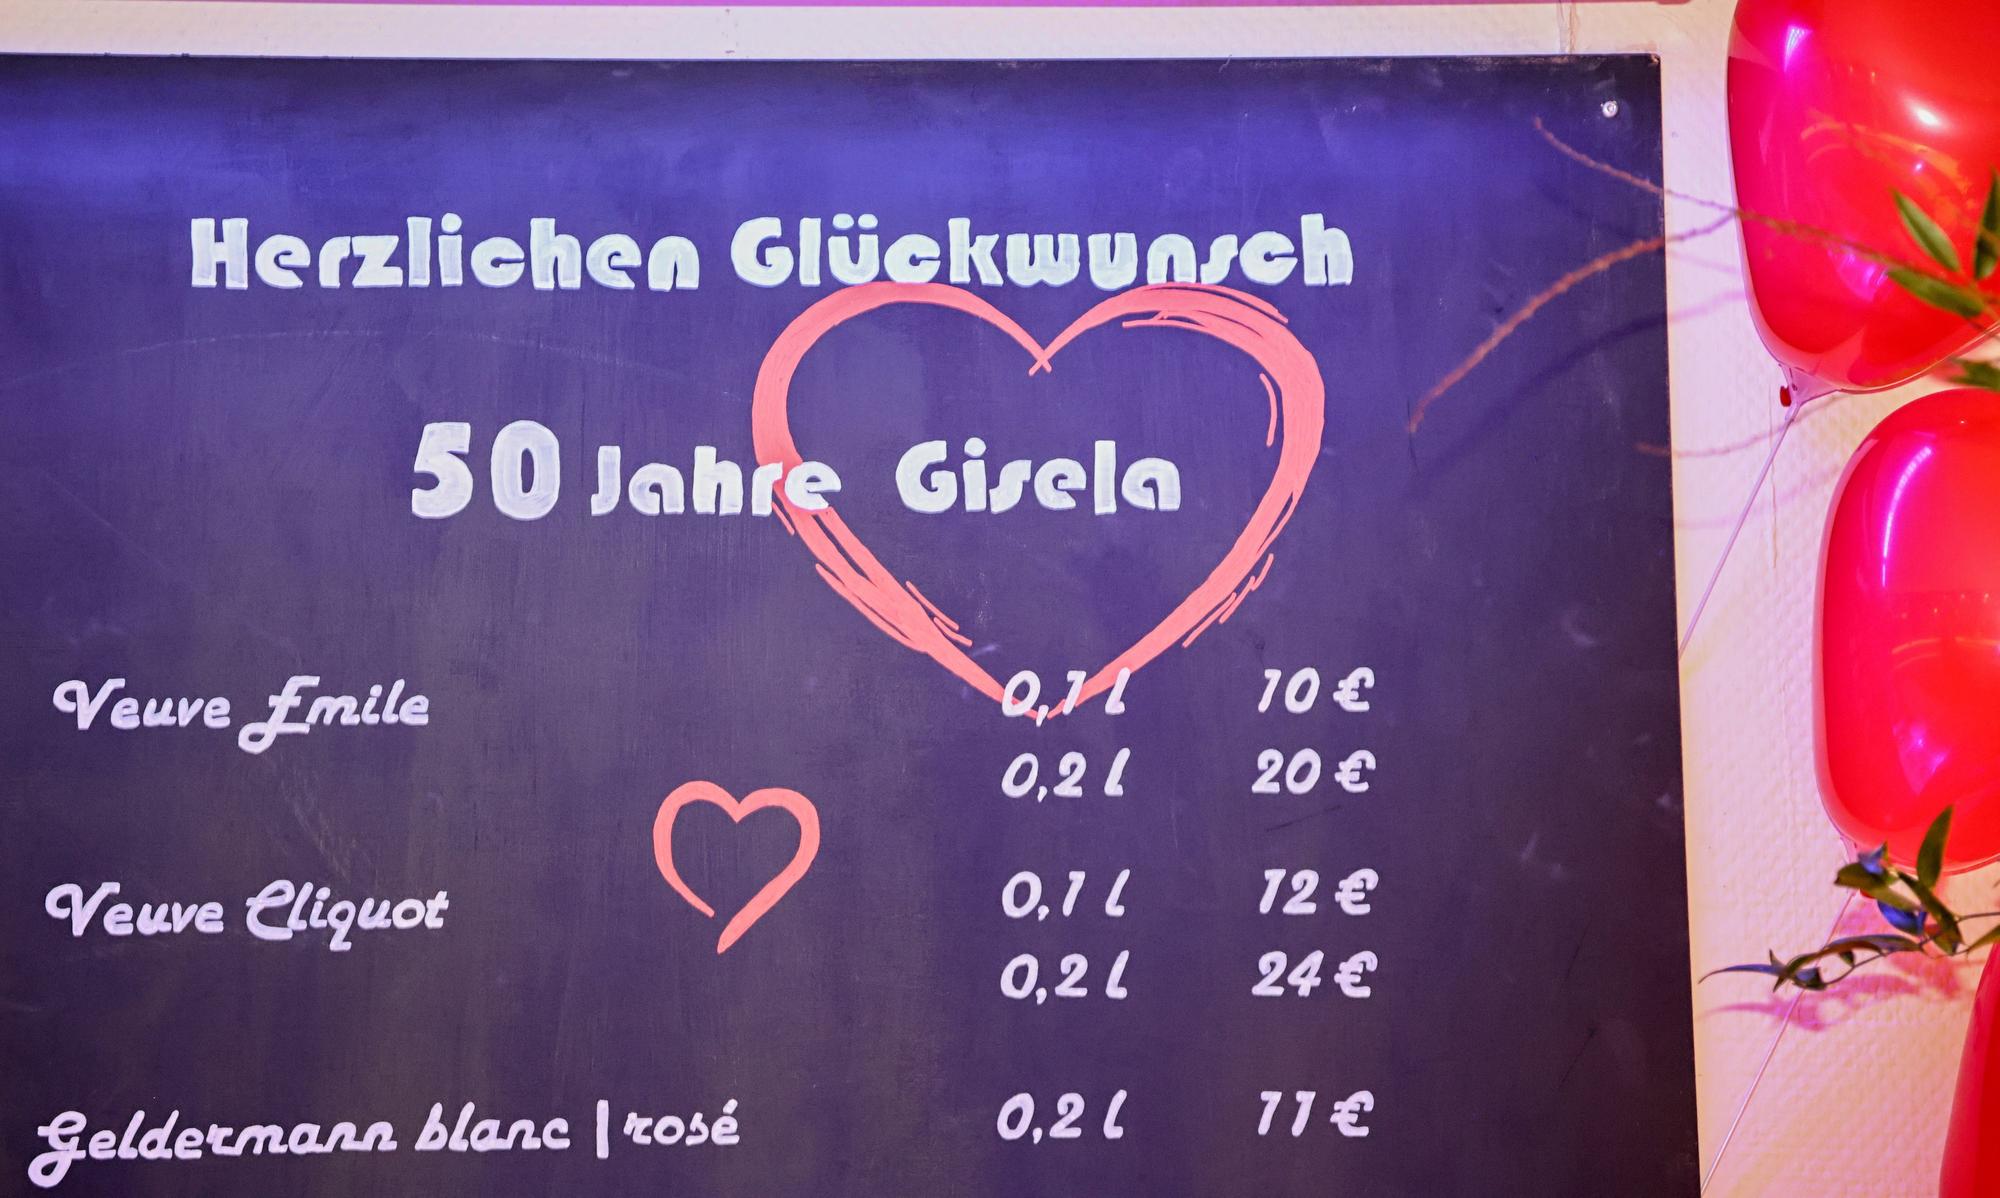 Herzlichen Glückwunsch
50 Jahre Gisela
Veuve Emile 0,1 l 10 €
0,2 l 20 €
Veuve Cliquot 0,1 l 12 €
0,2 l 24 €
Geldermann blanc | rosé 0,2 l 11 €